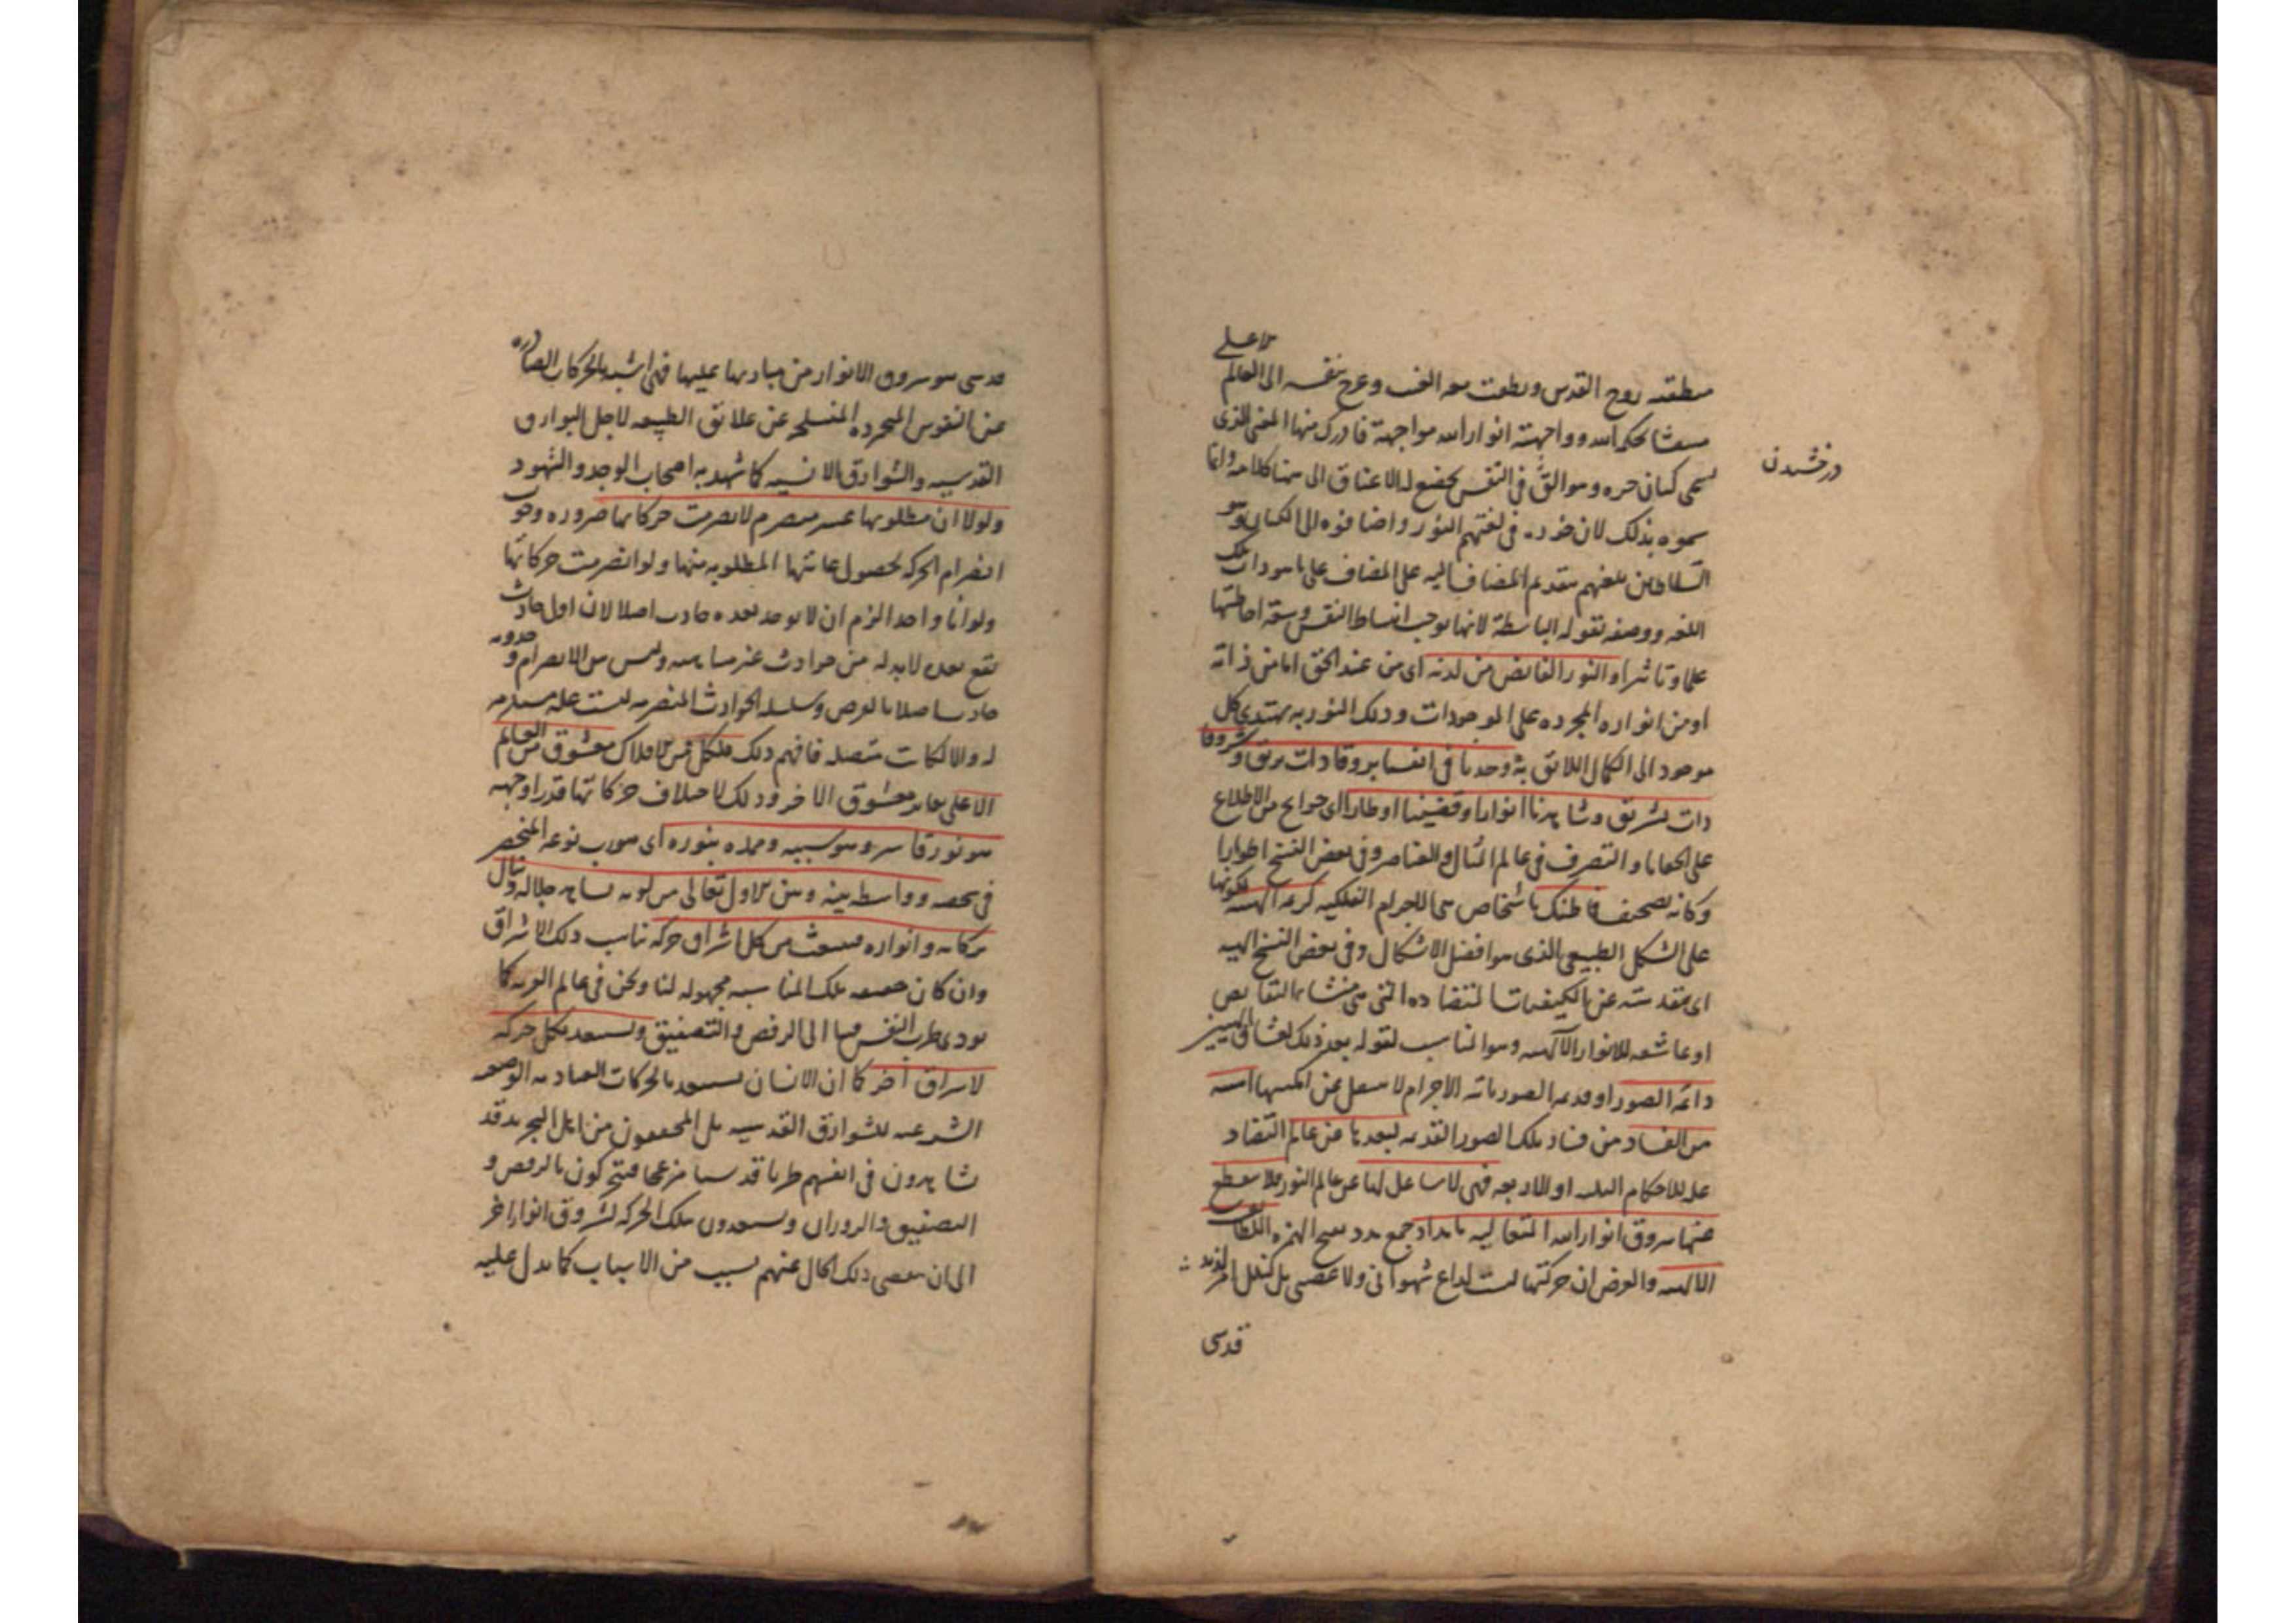 الاعلى
منطقته روح القدس ونطقت معه الف وعرج بنفسه الى العالم
متغشا بحكم الله وواجهته انوار الله مواجهة فادرك منها المعنى الذى
يسمى كيان خره وهو القّ فى النفس يخضع له الاعناق الى هنا كلامه وانما
درخشیدن
سموه بذلك لان خره فى لغتهم النور واضافوه الى الكيان وهو
السلاطين بلغتهم بتقديم المضاف اليه على المضاف على ما هو داب تلك
اللغه ووصفه بقوله الباسطة لانها توجب انبساط النفس وسعة احاطتها
علما وتاثيرا والنور الفايض من لدنه اى من عند الحق اما من ذاته
او من انواره المجرده على الموجودات وذلك النور به يهتدى كل
موجود الى الكمال اللائق به وجدنا فى انفسنا بروقا ذات بريق وشروقا
ذات تشريق وشاهدنا انوارا وقضينا اوطارا اى حوايج من الاطلاع
على الخفايا والتصرف فى عالم المثال والعناصر وفى بعض النسخ اطوارا
وكانه تصحيف فما ظنك باشخاص هى الاجرام الفلكيه كريمه الهيئه لكونها
على الشكل الطبيعى الذى هو افضل الاشكال وفى بعض النسخ الهيه
اى مقدسته عن الكيفيات المتضاده التى هى منشا النقايص
او عاشقه للانوار الآلهيه وهو المناسب لقوله بعد ذلك لعشاق
دائمه الصور او قديمه الصور ثابته الاجرام لا تنتقل عن امكنتها آمنه
من الفساد من فساد تلك الصور القديمه لبعدها عن عالم التضاد
علله للاحكام الثلث او الاربعه فهى لا شاغل لها عن عالم النور فلا ينقطع
عنها شروق انوار الله المتعاليه بامداد جمع مدد بفتح الهمزه اللطائف
الالهيه والغرض ان حركتها ليست لداع شهوانى ولا غضبى بل لنيل امر
قدسى
قدسى هو شروق الانوار من مباديها عليها فهى اشبه بالحركات الصادره
عن النفوس المجرده المنسلخه عن علائق الطبيعه لاجل البوارق
القدسيه والشوارق الانسيه كما شهد به اصحاب الوجد والشهود
ولولا ان مطلوبها غير منصرم لانصرمت حركاتها ضروره وجوب
انصرام الحركه لحصول غايتها المطلوبه منها ولو انصرمت حركاتها
ولو انا واحدا لزم ان لا يوجد بعده حادث اصلا لان اول حادث
يقع بعده لا بد له من حوادث غير متناهيه وليس من الانصرام وحدوثه
حادثا اصلا بالعرض وسلسله الحوادث المنصرمه ليست عله مستلزمه
له والا لكانت متصله فافهم ذلك فلكل من الافلاك معشوق من العالم
الاعلى يغاير معشوق الاخر وذلك لاختلاف حركاتها قدرا وجهه
هو نور قاهر وهو سببه وممده بنوره اى هو رب نوعه المنحصر
فى شخصه وواسطه بينه وبين الاول تعالى من لدنه يشاهد جلاله وينال
بركاته وانواره فينبعث من كل اشراق حركه تناسب ذلك الاشراق
وان كان حقيقه تلك المناسبه مجهوله لنا ونحن فى عالم الغربه كما
يودى طرب النفس منا الى الرقص والتصفيق ويستعد بكل حركه
لاشراق آخر كما ان الانسان يستعد بالحركات العباديه الوضعيه
الشرعيه للشوارق القدسيه بل المحققون من اهل التجريد قد
يشاهدون فى انفسهم طربا قدسيا مزعجا فيتحركون بالرقص و
التصفيق والدوران ويستعدون بتلك الحركه لشروق انوار اخر
الى ان ينقضى ذلك الحال عنهم بسبب من الاسباب كما يدل عليه